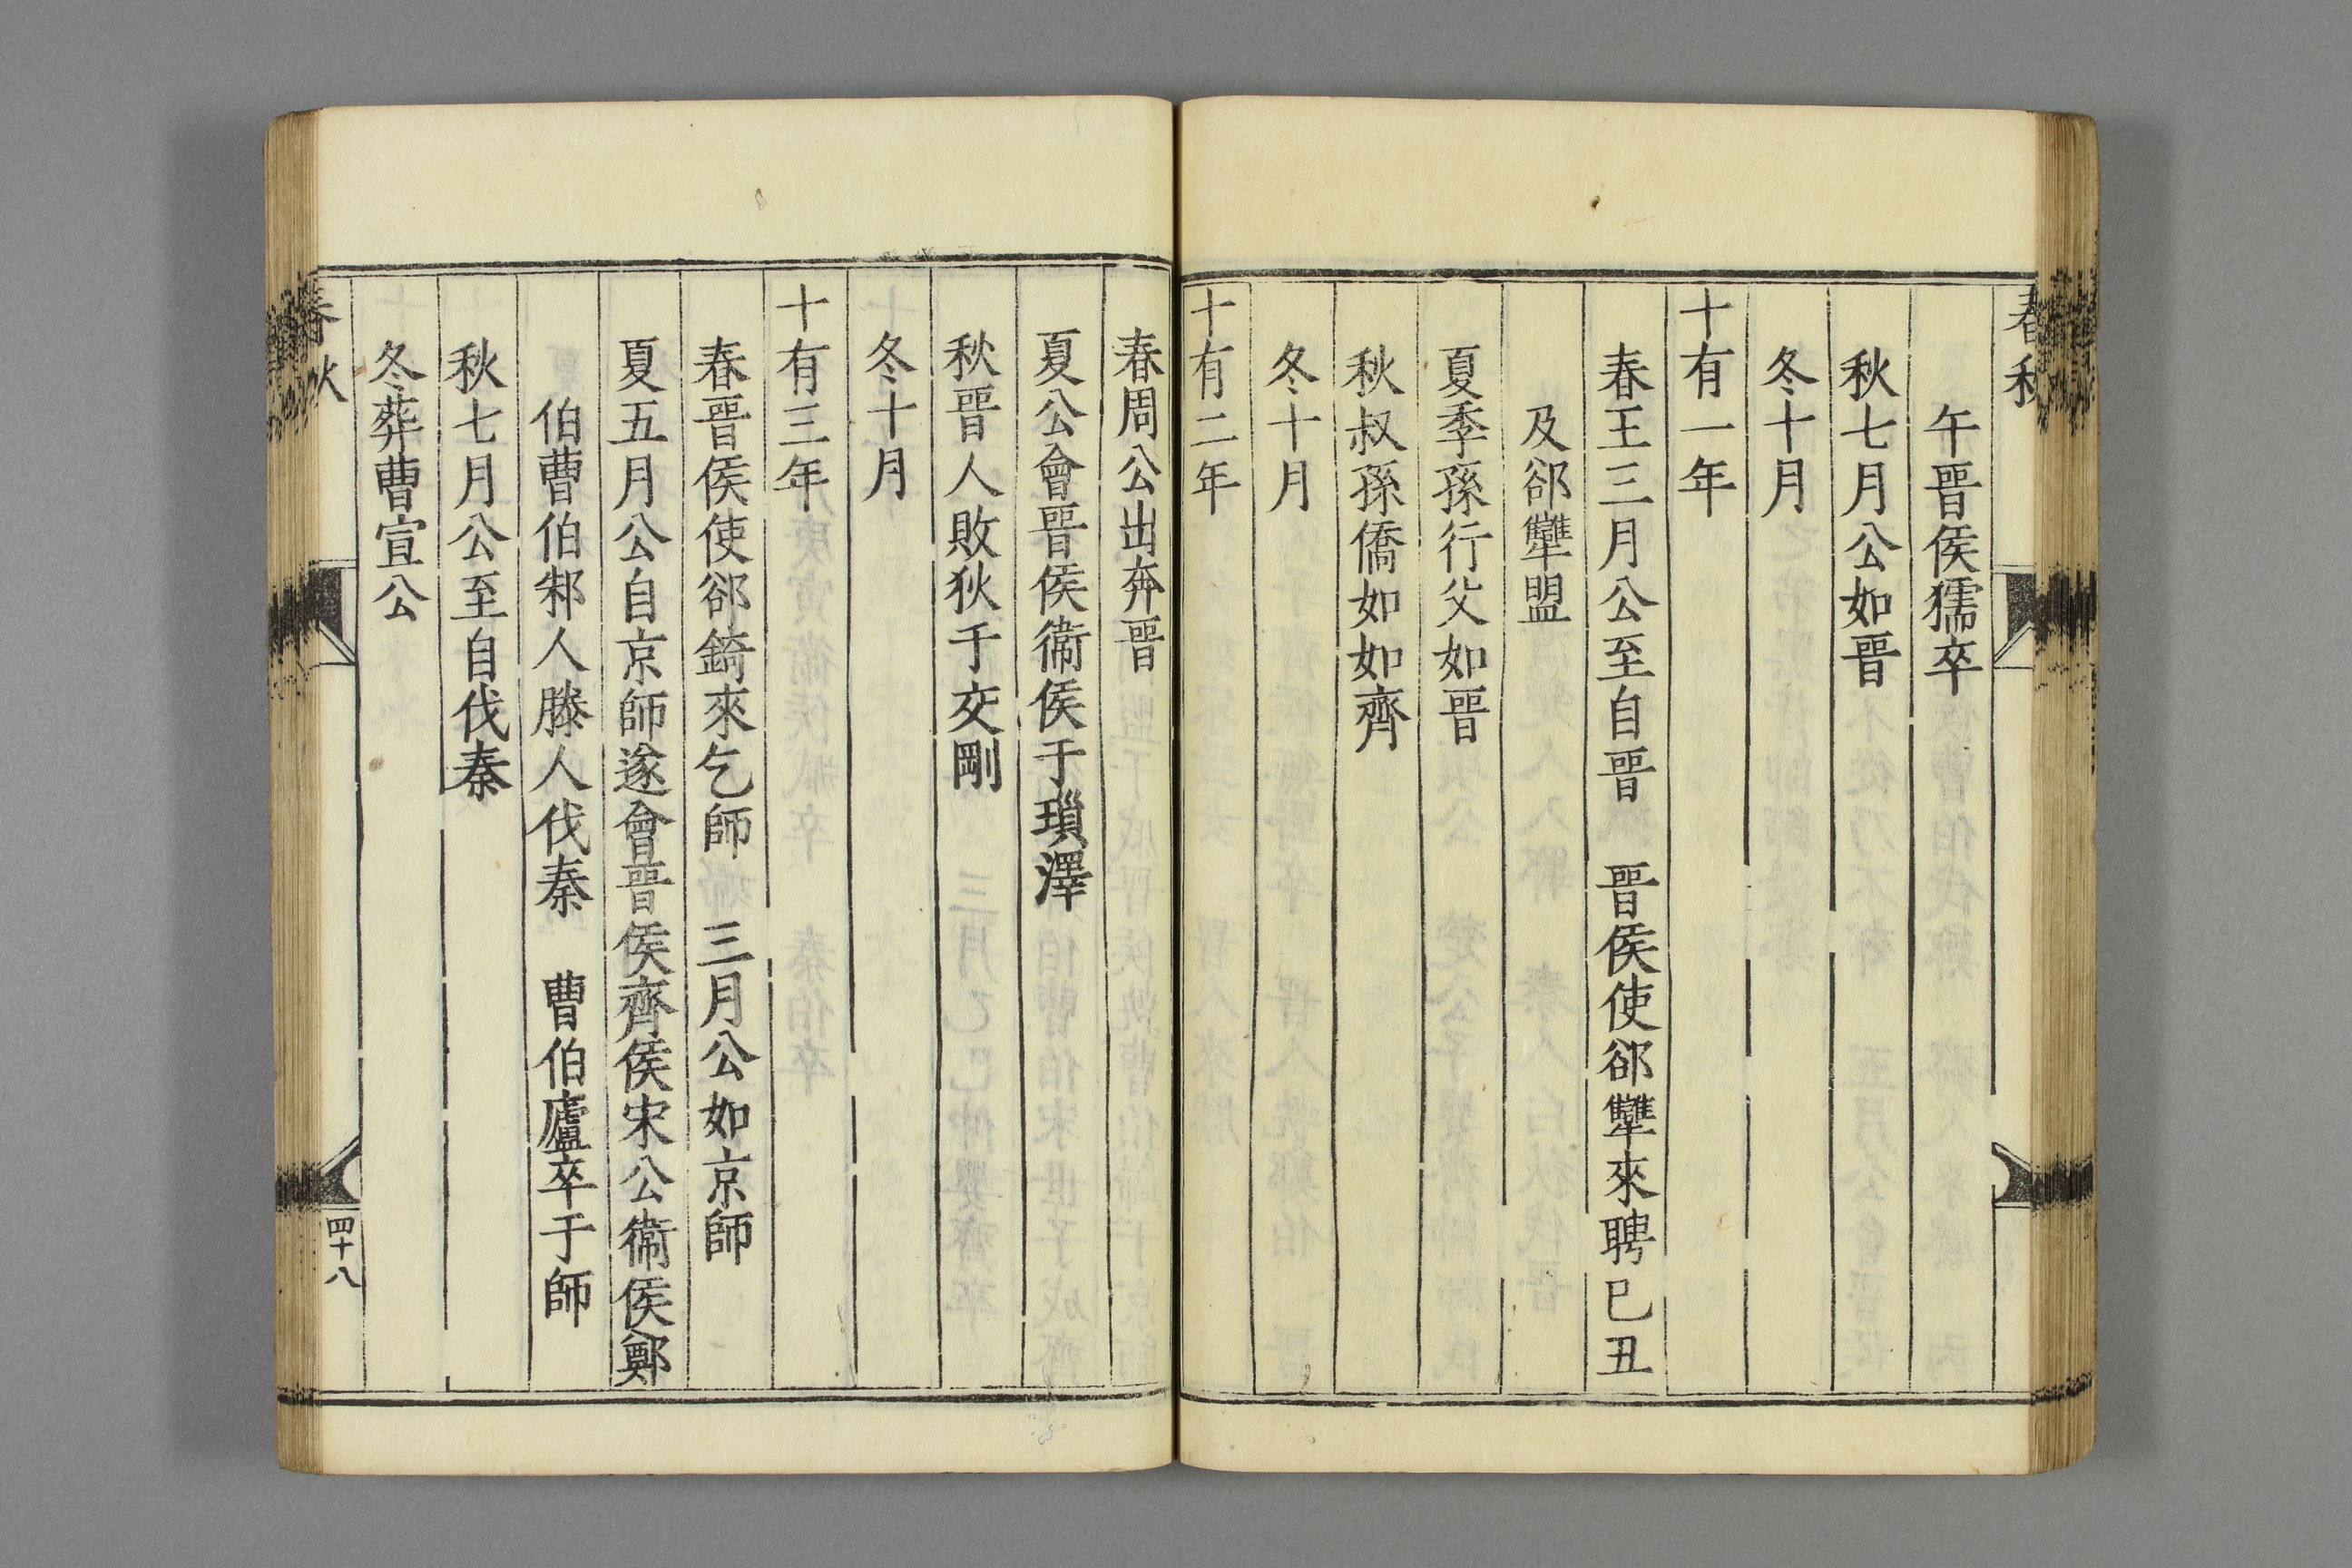 春秋
午晉侯獳卒
秋七月公如晉
冬十月
十有一年
春王三月公至自晉　晉侯使郤犨來聘已丑
及郤犨盟
夏季孫行父如晉
秋叔孫僑如如齊
冬十月
十有二年
春周公出奔晉
夏公會晉侯衞侯于瑣澤
秋晉人敗狄于交剛
冬十月
十有三年
春晉侯使郤錡來乞師　三月公如京師
夏五月公自京師遂會晉侯齊侯宋公衞侯鄭
伯曹伯邾人滕人伐秦　曹伯廬卒于師
秋七月公至自伐秦
冬葬曹宣公
春秋
四十八